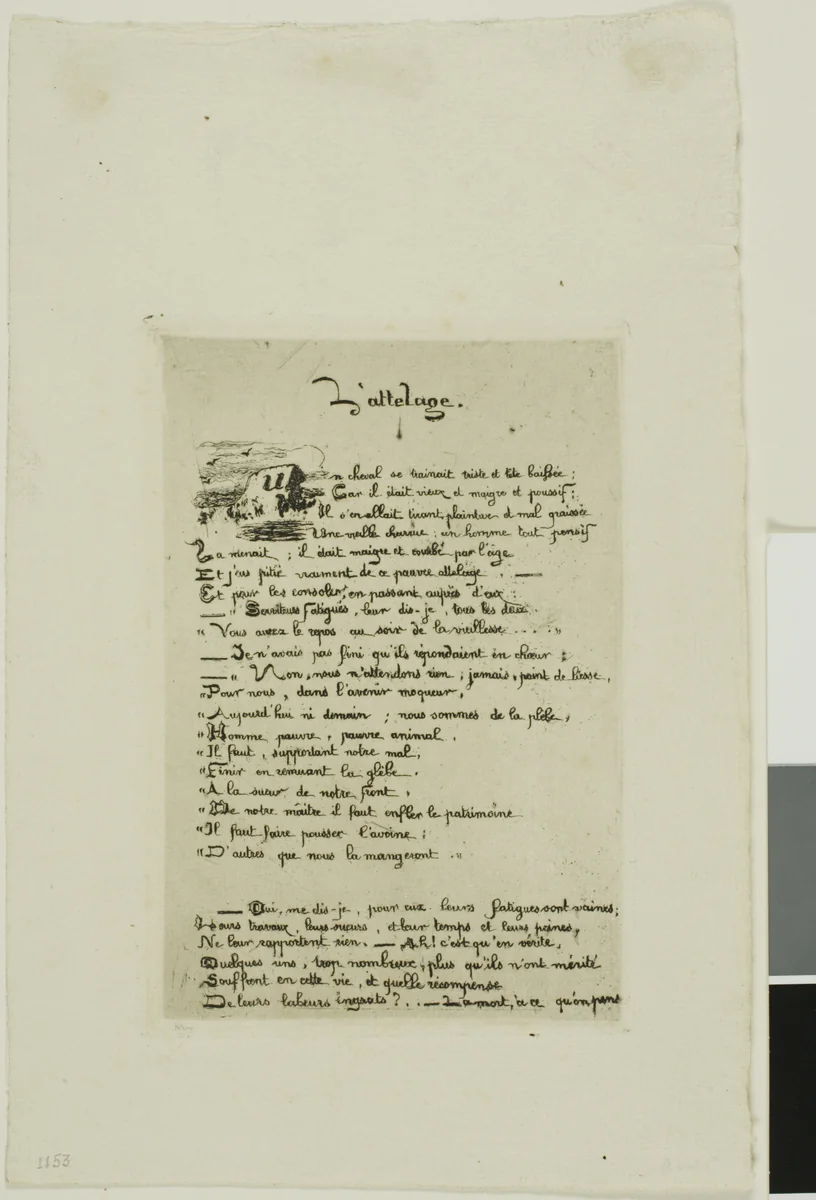 L'attelage.
Un cheval se trainait triste et tête baissée ;
Car il était vieux et maigre et poussif ;
Il s'en allait tirant, plaintive et mal graissée
Une vieille charrue ; un homme tout pensif
La menait ; il était maigre et courbé par l'âge
Et j'eus pitié vraiment de ce pauvre attelage . —
Et pour les consoler, en passant auprès d'eux :
— " Serviteurs fatigués, leur dis-je, tous les deux .
" Vous aurez le repos au soir de la vieillesse . . . : "
— Je n'avais pas fini qu'ils répondaient en chœur :
— " Non, nous n'attendons rien ; jamais, point de liesse,
" Pour nous, dans l'avenir moqueur,
" Aujourd'hui ni demain ; nous sommes de la plèbe,
" Homme pauvre, pauvre animal,
" Il faut, supportant notre mal,
" Finir en remuant la glèbe .
" A la sueur de notre front,
" De notre maître il faut enfler le patrimoine
" Il faut faire pousser l'avoine ;
" D'autres que nous la mangeront . "
— Oui, me dis-je, pour eux leurs fatigues sont vaines ;
Leurs travaux, leurs sueurs, et leur temps et leurs peines,
Ne leur rapportent rien. — Ah ! c'est qu'en vérité,
Quelques uns, trop nombreux, plus qu'ils n'ont mérité
Souffrent en cette vie, et quelle récompense
De leurs labeurs ingrats ? . . — La mort, à ce qu'on pens
1153